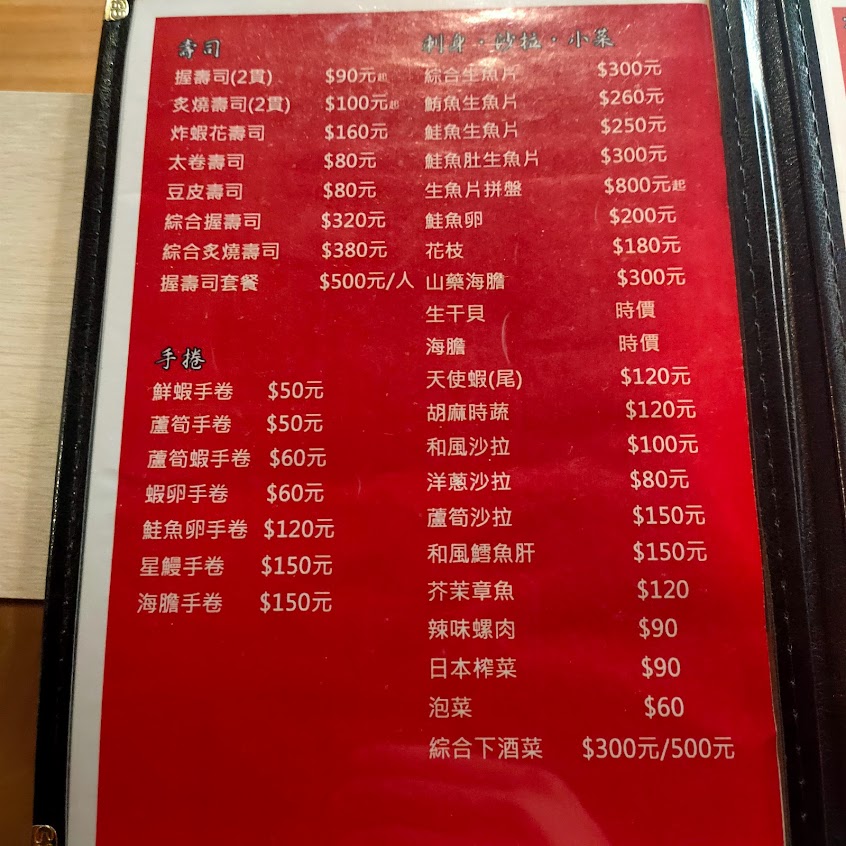 壽司
握壽司(2貫) $90元起
炙燒壽司(2貫) $100元起
炸蝦花壽司 $160元
太卷壽司 $80元
豆皮壽司 $80元
綜合握壽司 $320元
綜合炙燒壽司 $380元
握壽司套餐 $500元/人
手捲
鮮蝦手卷 $50元
蘆筍手卷 $50元
蘆筍蝦手卷 $60元
蝦卵手卷 $60元
鮭魚卵手卷 $120元
星鰻手卷 $150元
海膽手卷 $150元
刺身・沙拉・小菜
綜合生魚片 $300元
鮪魚生魚片 $260元
鮭魚生魚片 $250元
鮭魚肚生魚片 $300元
生魚片拼盤 $800元起
鮭魚卵 $200元
花枝 $180元
山藥海膽 $300元
生干貝 時價
海膽 時價
天使蝦(尾) $120元
胡麻時蔬 $120元
和風沙拉 $100元
洋蔥沙拉 $80元
蘆筍沙拉 $150元
和風鱈魚肝 $150元
芥茉章魚 $120
辣味螺肉 $90
日本榨菜 $90
泡菜 $60
綜合下酒菜 $300元/500元